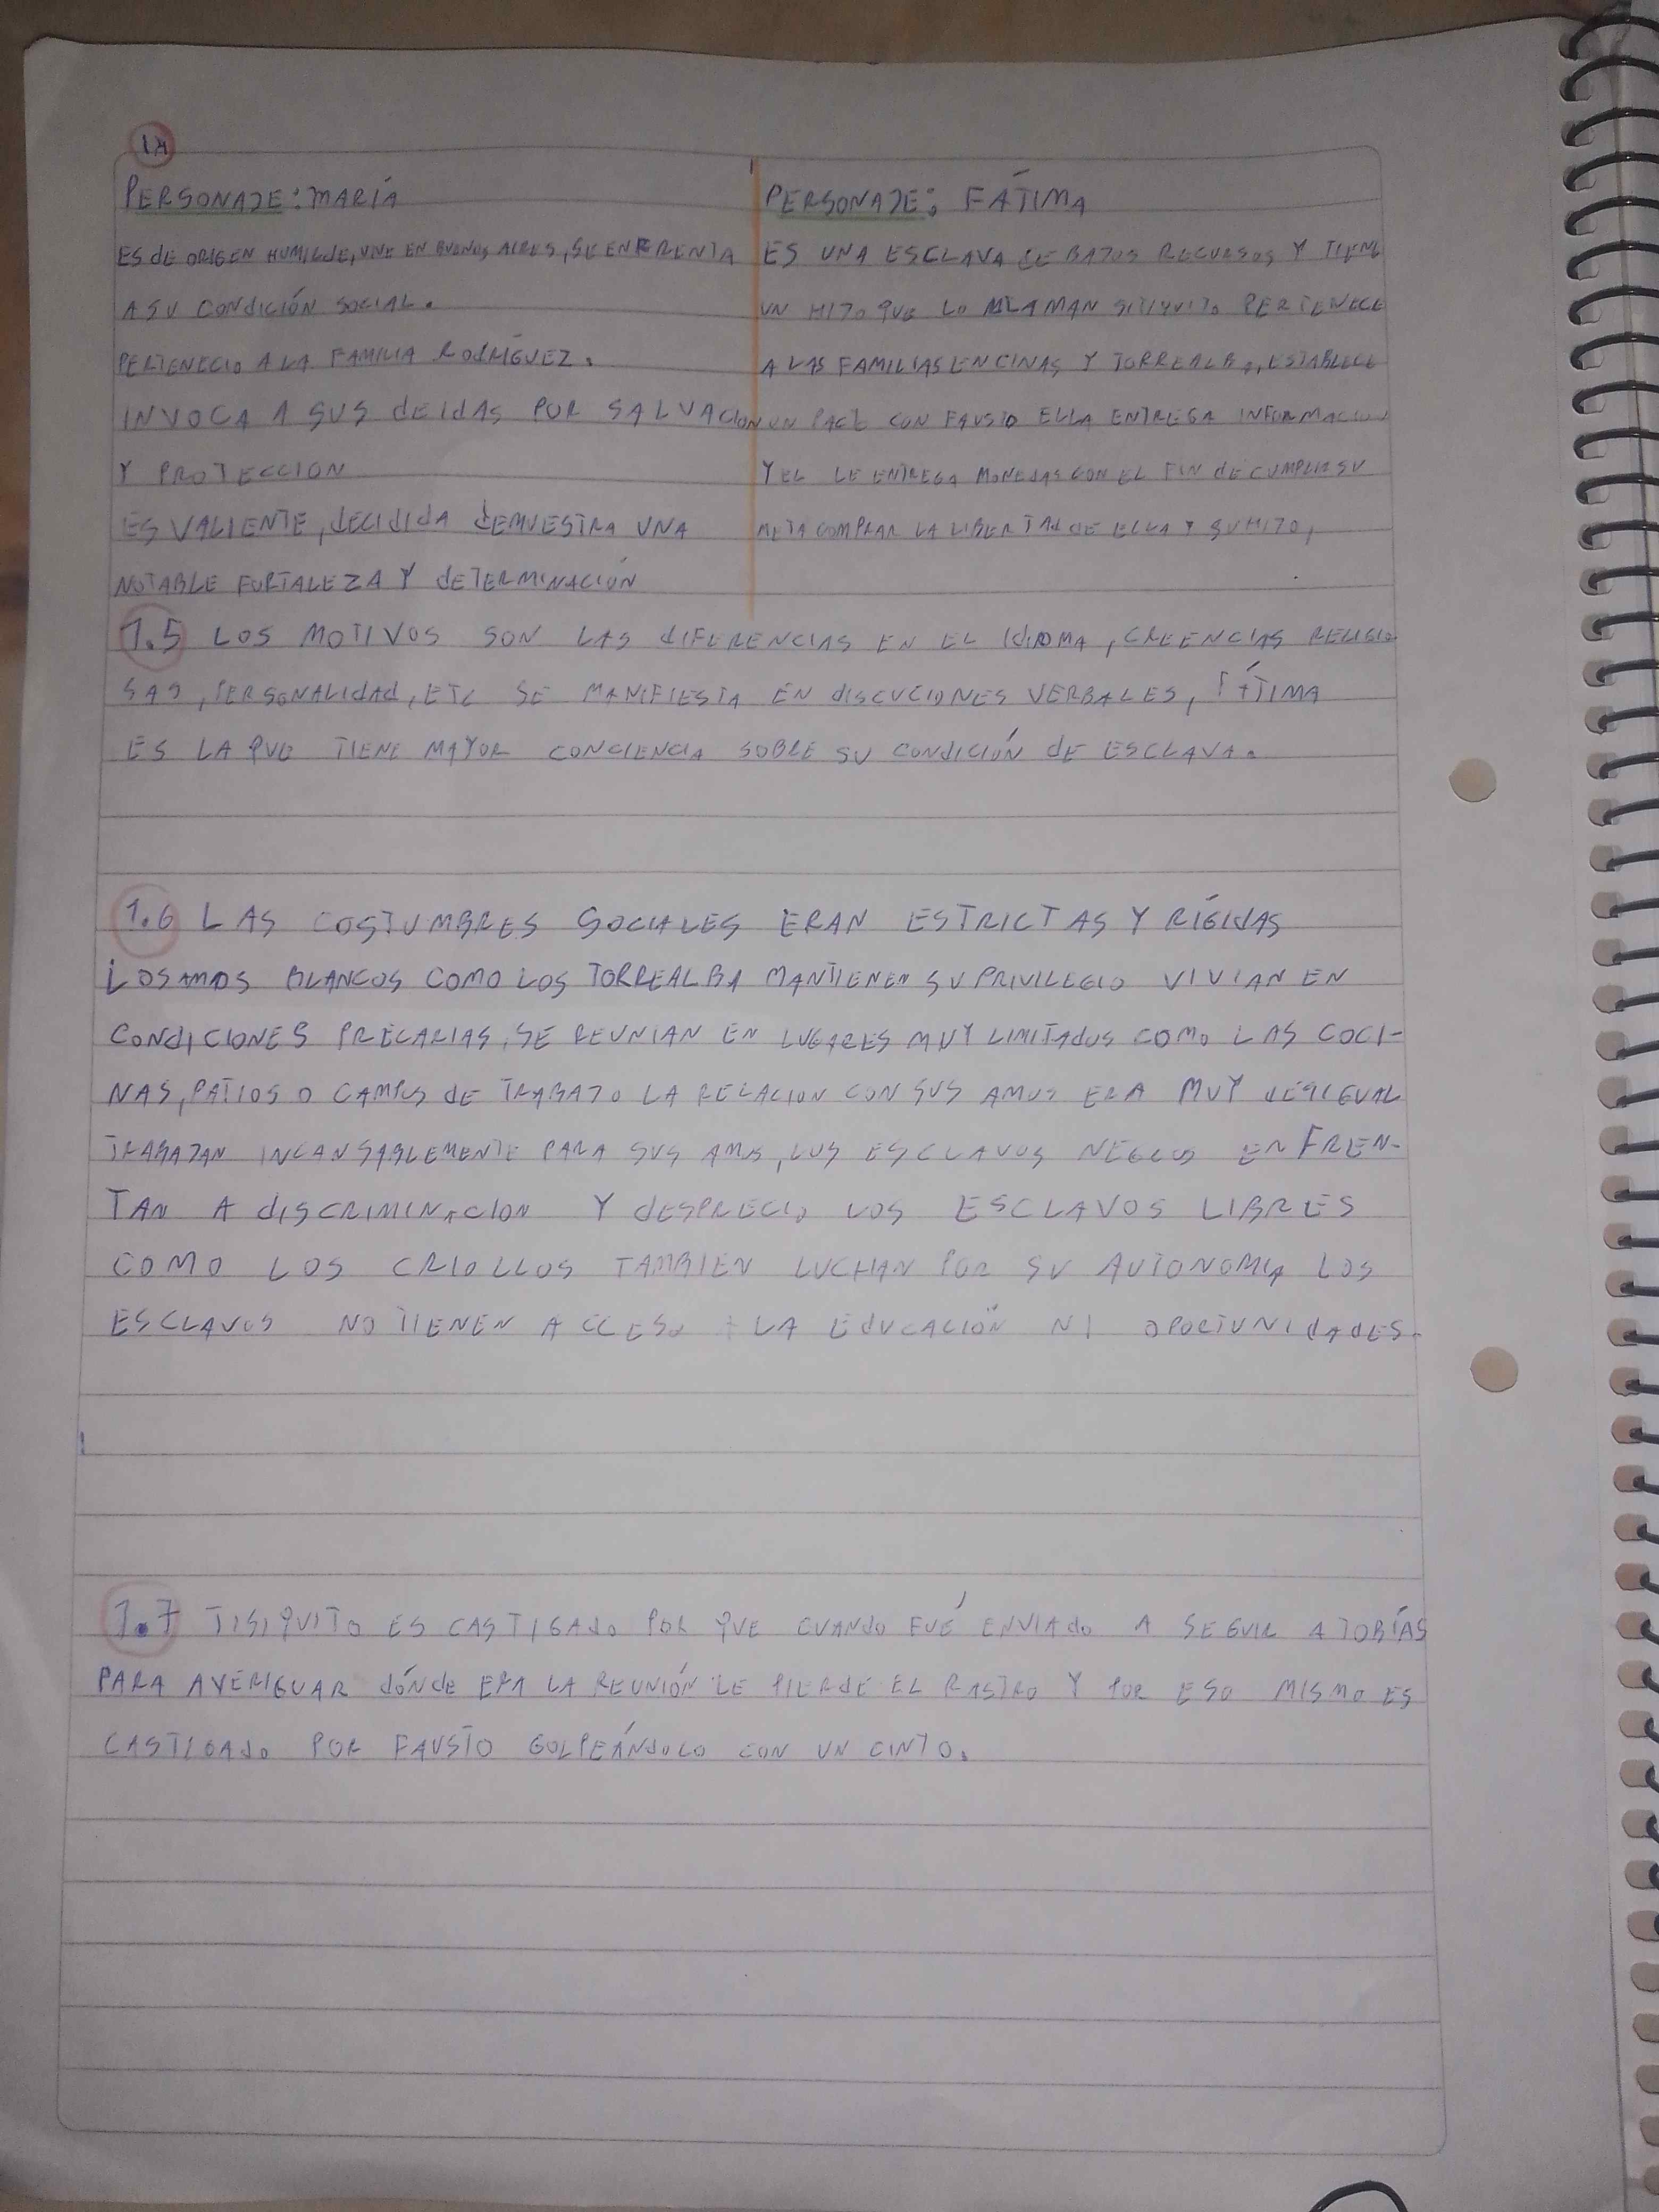 1.4
PERSONAJE: MARÍA
ES dE ORIGEN HUMILdE, VIVE EN BUENOS AIRES, SE ENFRENTA
A SU CONdICIÓN SOCIAL.
PERTENECIO A LA FAMILIA ROdRÍGUEZ.
INVOCA A SUS dEIdAS POR SALVACION
Y PROTECCION
ES VALIENTE, dECIdIdA dEMUESTRA UNA
NOTABLE FORTALEZA Y dETERMINACIÓN
PERSONAJE: FÁTIMA
ES UNA ESCLAVA DE BAJOS RECURSOS Y TIENE
UN HIJO QUE LO LLAMAN PERTENECE
A LAS FAMILIAS ENCINAS Y TORREALBA, ESTABLECE
UN CON FAUSTO ELLA ENTREGA INFORMACION
Y EL LE ENTREGA MONEdAS CON EL FIN dE CUMPLIR SU
META COMPRAR LA LIBERTAd dE ELLA Y SU HIJO,
1.5 LOS MOTIVOS SON LAS dIFERENCIAS EN EL IdIOMA, CREENCIAS RELIGIO
SAS, PERSONALIdAd, ETC SE MANIFIESTA EN dISCUCIONES VERBALES, FÁTIMA
ES LA QUE TIENE MAYOR CONCIENCIA SOBRE SU CONdICIÓN dE ESCLAVA.
1.6 LAS COSTUMBRES SOCIALES ERAN ESTRICTAS Y RÍGIdAS
LOS AMOS BLANCOS COMO LOS TORREALBA MANTIENEN SU PRIVILEGIO VIVIAN EN
CONdICIONES PRECARIAS, SE REUNIAN EN LUGARES MUY LIMITAdOS COMO LAS COCI-
NAS, PATIOS O CAMPOS dE TRABAJO LA RELACION CON SUS AMOS ERA MUY dESIGUAL
TRABAJAN INCANSABLEMENTE PARA SUS AMOS, LOS ESCLAVOS NEGROS ENFREN-
TAN A dISCRIMINACION Y dESPRECIO LOS ESCLAVOS LIBRES
COMO LOS CRIOLLOS TAMBIEN LUCHAN POR SU AUTONOMIA LOS
ESCLAVOS NO TIENEN ACCESO A LA EdUCACIÓN NI OPORTUNIdAdES.
1.7 TISIQUITO ES CASTIGAdO POR QUE CUANdO FUÉ ENVIAdO A SEGUIR A TOBÍAS
PARA AVERIGUAR dÓNdE ERA LA REUNIÓN LE PIERdE EL RASTRO Y POR ESO MISMO ES
CASTIGAdO POR FAUSTO GOLPEÁNdOLO CON UN CINTO.